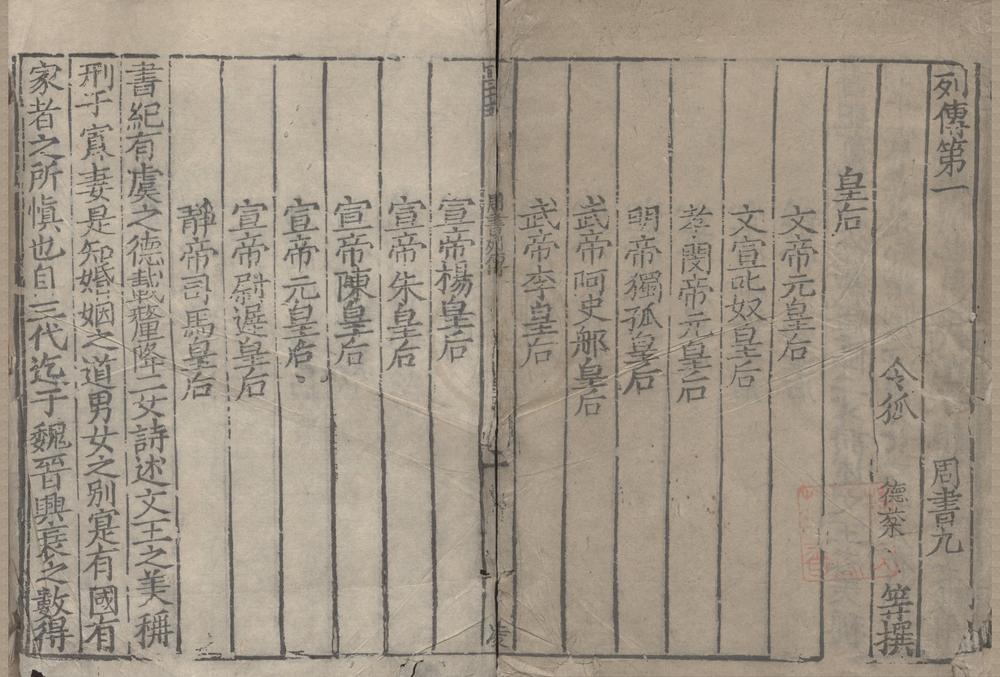 列傳第一　周書九
令狐　德棻　等撰
皇后
文帝元皇后
文宣叱奴皇后
孝閔帝元皇后
明帝獨孤皇后
武帝阿史那皇后
武帝李皇后
周書列傳一
宣帝楊皇后
宣帝朱皇后
宣帝陳皇后
宣帝元皇后
宣帝尉遲皇后
靜帝司馬皇后
書紀有虞之德載釐降二女詩述文王之美稱
刑于寡妻是知婚姻之道男女之别寔有國有
家者之所慎也自三代迄于魏晉興衰之數得